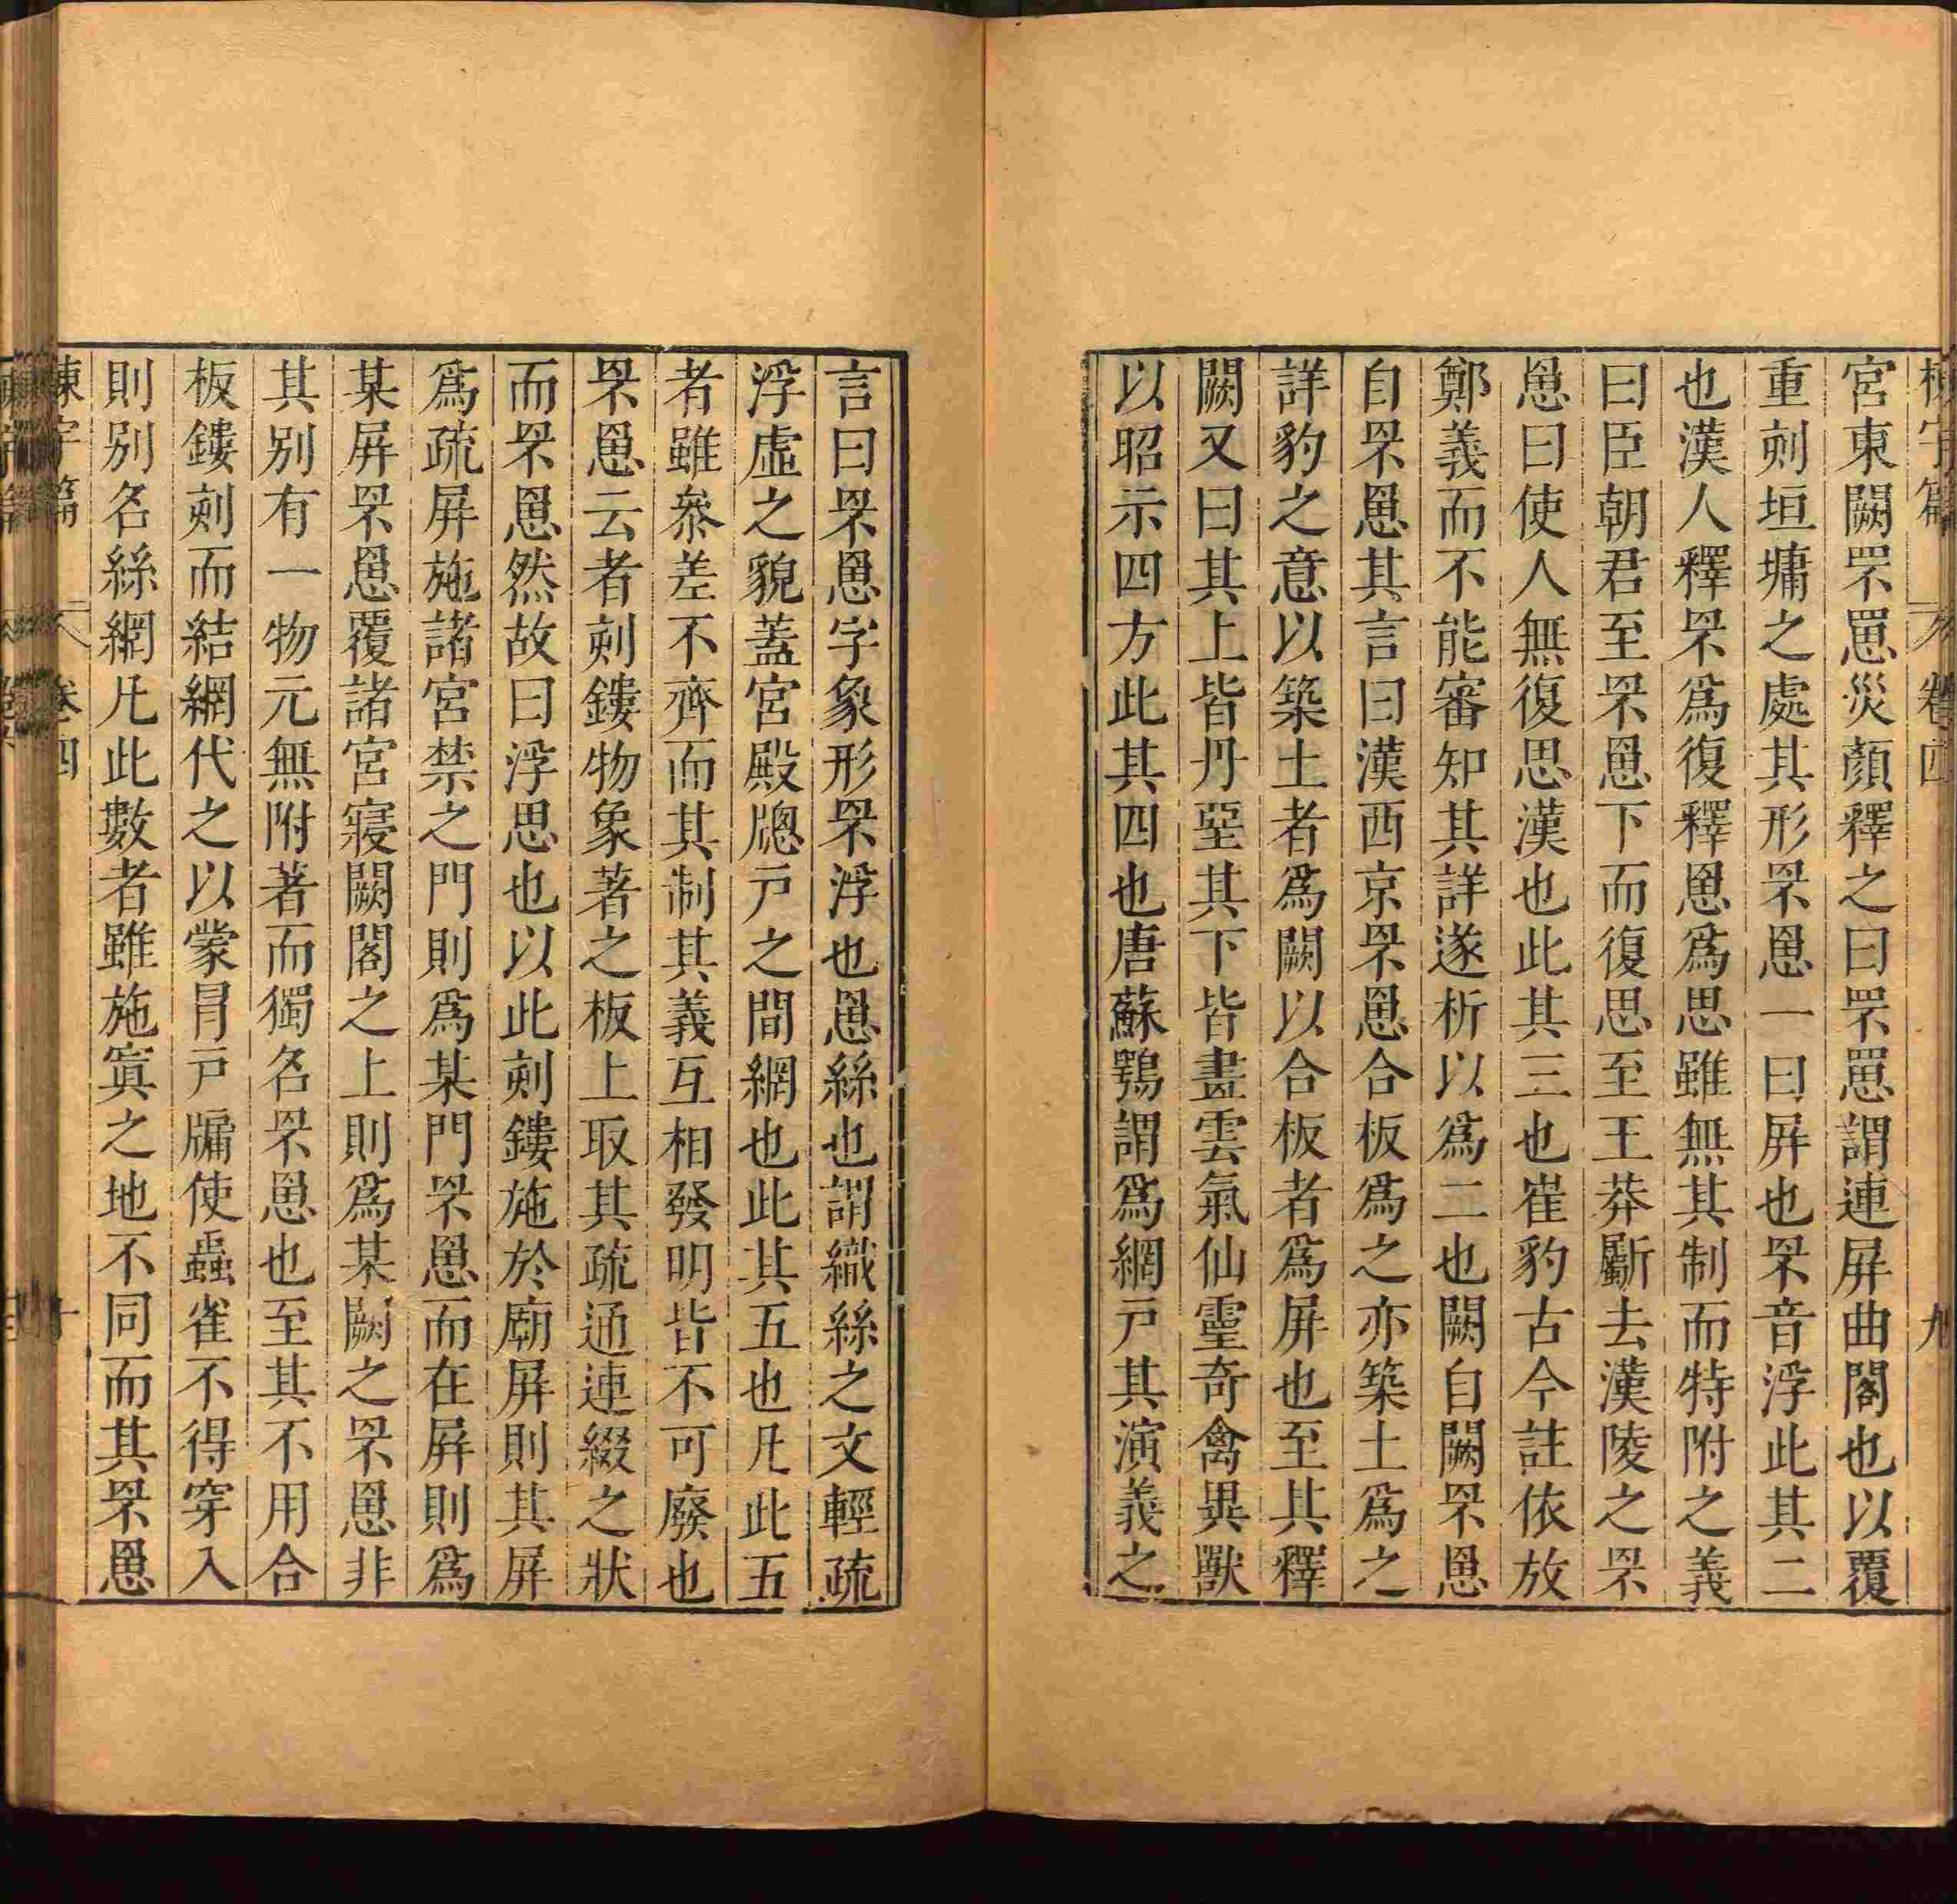 棟宇篇 卷四 九
宮東闕罘罳災顏釋之曰罘罳謂連屏曲閣也以覆
重刻垣墉之處其形罘罳一曰屏也罘音浮此其二
也漢人釋罘為復釋罳為思雖無其制而特附之義
曰臣朝君至罘罳下而復思至王莽斸去漢陵之罘
罳曰使人無復思漢也此其三也崔豹古今註依放
鄭義而不能審知其詳遂析以為二也闕自闕罘罳
自罘罳其言曰漢西京罘罳合板為之亦築土為之
詳豹之意以築土者為闕以合板者為屏也至其釋
闕又曰其上皆丹堊其下皆畫雲氣仙靈奇禽異獸
以昭示四方此其四也唐蘇鶚謂為網戶其演義之
言曰罘罳字象形罘浮也罳絲也謂織絲之文輕疏
浮虛之貌蓋宮殿牕戶之間網也此其五也凡此五
者雖叅差不齊而其制其義互相發明皆不可廢也
罘罳云者刻鏤物象著之板上取其疏通連綴之狀
而罘罳然故曰浮思也以此刻鏤施於廟屏則其屏
為疏屏施諸宮禁之門則為某門罘罳而在屏則為
某屏罘罳覆諸宮寢闕閣之上則為某闕之罘罳非
其別有一物元無附著而獨名罘罳也至其不用合
板鏤刻而結網代之以蒙冒戶牖使蟲雀不得穿入
則別名絲網凡此數者雖施寘之地不同而其罘罳
棟宇篇 卷四 十